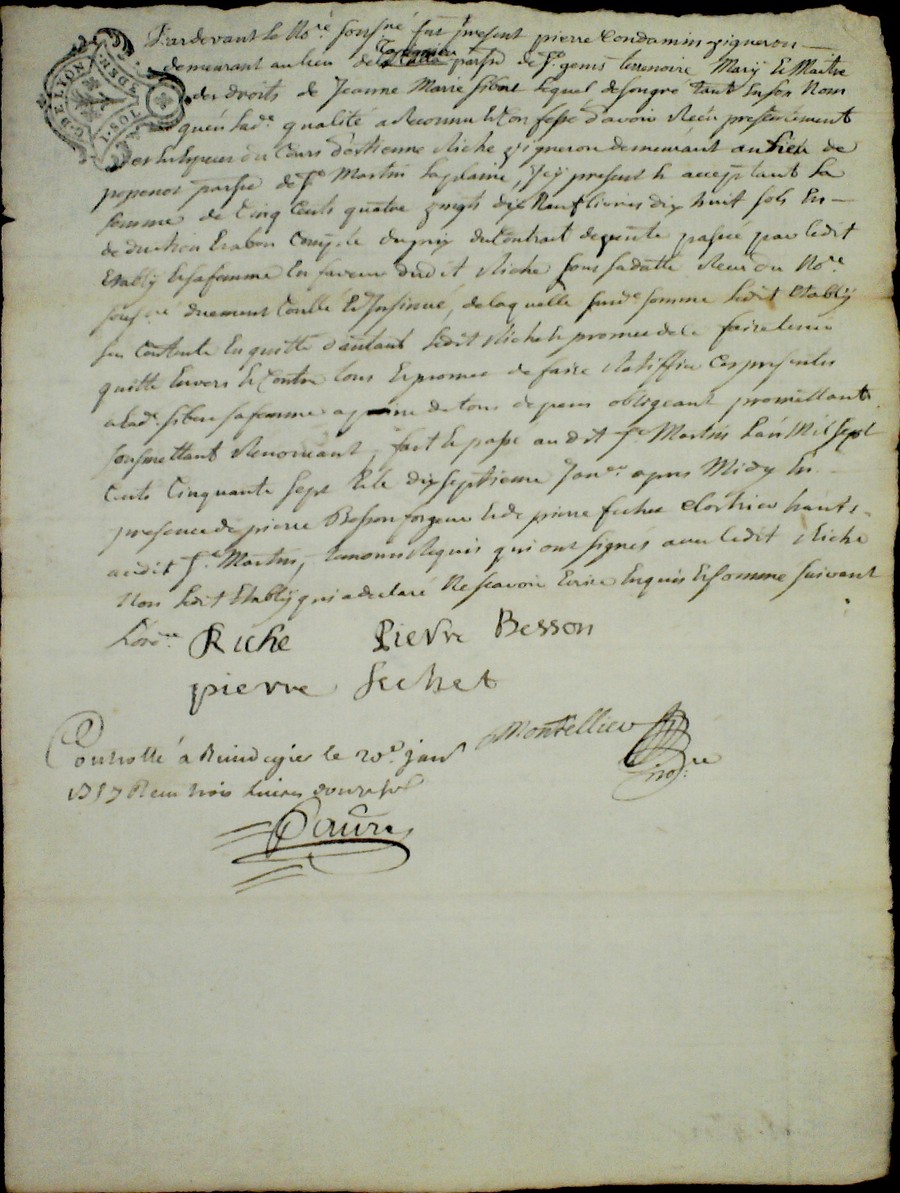 G.DE LYON
1.SOL
Pardevant le No.re sousné fut present pierre Condamin vigneron
demeurant au lieu de la parsse de St genis terrenoire Mary Et Maitre
des droits de Jeanne Marie sibert lequel de son gré tant En son Nom
qu'en lad.e qualité a Reconnu Et Confessé d'avoir Receu presentement
des Especes du Cours d'estienne Riche vigneron demeurant au lieu de
parsse de St Martin la plaine, Icy present & acceptant La
somme de Cinq Cents quatre vingts dix Neuf livres dix huit sols En
deduction Et a bon Compte du prix du Contrait de vente passé par ledit
Etably Et sa femme En faveur dudit Riche sous sa datte Receu du No.re
sousné duement Conllé Et Insinué, de laquelle susd.e somme ledit Etably
se Contente En quitte d'autant ledit Riche & promet de le faire tenir
quitte Envers Et Contre tous Et promet de faire Ratiffier Ces presentes
a lad. sibert sa femme a peine de tous depens obligeant promettant
soumettant Renoncant, fait & passé audit St Martin L'an Mil sept
Cents Cinquante sept & le dix septieme Janv.er apres Midy En
presence de pierre Besson forgeur & de pierre sechet clortrier hants
audit St Martin, temoins Requis qui ont signés avec ledit Riche
Non ledit Etably qui a declaré Ne scavoir Ecrire Enquis Et somme suivant
L'ord.ce Riche Pierre Besson
pierre sechet
Montellier No.re
Controllé a Rivedegier le 20.e janv
1757 Receu trois livres douze sols
Paure